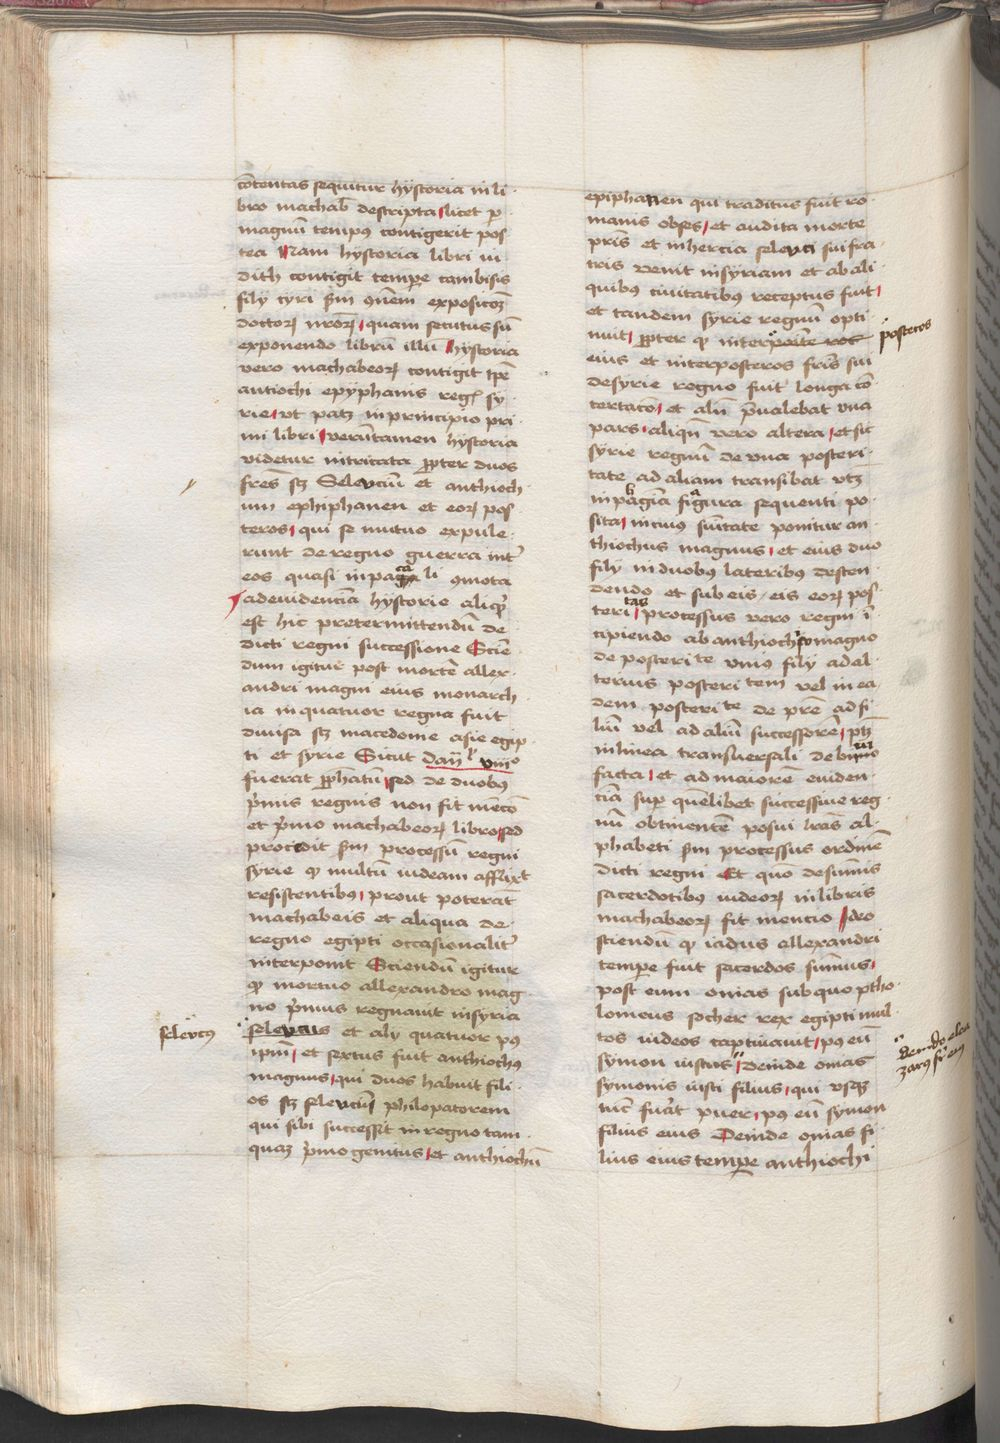 cōtentas sequitur hystoria in li
bro machab descripta licet p
magnū tempus contigerit pos
tea Nam hystoria libri iu
dith contigit tempe cambisis
filij cyri
doctoꝝ nr̄oꝝ quam secutus sū
exponendo librū illū hystoria
vero machabeoꝝ contigit tpe
antiochi epyphanis reg sy
rie vt patꝫ in principio pri
mi libri verūtamen hystoria
videtur intricata ꝓpter duos
fres sꝫ Seleucū et anthioch
um ephiphanen et eoꝝ pos
teros qui se mutuo expule
runt de regno guerra int
eos quasi
ad euidenciā hystorie aliqͥ
est hic pretermittendū de
dicti regni successione Scie
dum igitur post mortē allex
andri magni eius monarch
ia in quatuor regna fuit
diuisa sꝫ macedonie asie egip
ti et syrie Sicut Dan viiiº
fuerat ꝓphatū sed de duobus
pmis regnis non fit mēcō
et pmo machabeoꝝ libro sed
procedit processū regni
syrie qͥ multū iudeam afflixͭ
resistentibus prout poterāt
machabeis et aliqua de
regno egipti occasionalit
interponit Sciendū igitur
ꝙ mortuo allexandro mag
no pmus regnauit in syria
seleucus et alij quatuor pꝰ
ipm et sextus fuit anthiochus
magnus qui duos habuit fili
os sꝫ seleucū philopatorem
qui sibi successit in regno tam
quaꝫ pmogenitus et anthiochū
seleucus
epiphanen qui traditus fuit ro
manis obses et audita morte
pris et inhercia seleuci sui fra
tris venit in syriam et ab ali
quibus ciuitatibus receptus fuit
et tandem syrie regnū opti
nuit ꝓpter ꝙ inter
eius et inter posteros fris sui
de syrie regno fuit longa cō
tertacō et aliū pualebat vna
pars aliqn̄ vero altera et sic
syrie regnū de vna posteri
tate ad aliam transibat vtꝫ
in pagīa figura sequenti po
sita in cuius sūitate ponitur an
thiochus magnus et eius duo
filij in duobus lateribus descen
dendo et sub eis eis eoꝝ pos
teritas processus vero regni ī
cipiendo ab anthiocho magno
de posterite vnius filij ad al
terius posteritem vel in ea
dem posterite de pre ad fi
liū vel ad aliū successorē ptꝫ
in linea transuersali de
facta et ad maiorē euiden
ciā sup quēlibet successiue reg
nū obtinentē posui lras al
phabeti processus ordinē
dicti regni Et quō de sūmis
sacerdotibus iudeoꝝ in libris
machabeoꝝ fit mencio
sciendū ꝙ iadus allexandri
tempe fuit sacerdos sūmus
post eum onias sub quo ptho
lomeus socher rex egipti mul
tos iudeos captiuauit pꝰ eū
symon iustus deinde onias
symonis iusti filius qui vsqꝫ
tūc fuāt puer pꝰ eū symon
filius eius Deinde onias fi
lius eius tempe anthiochi
posteros
Deinde elea
zarus